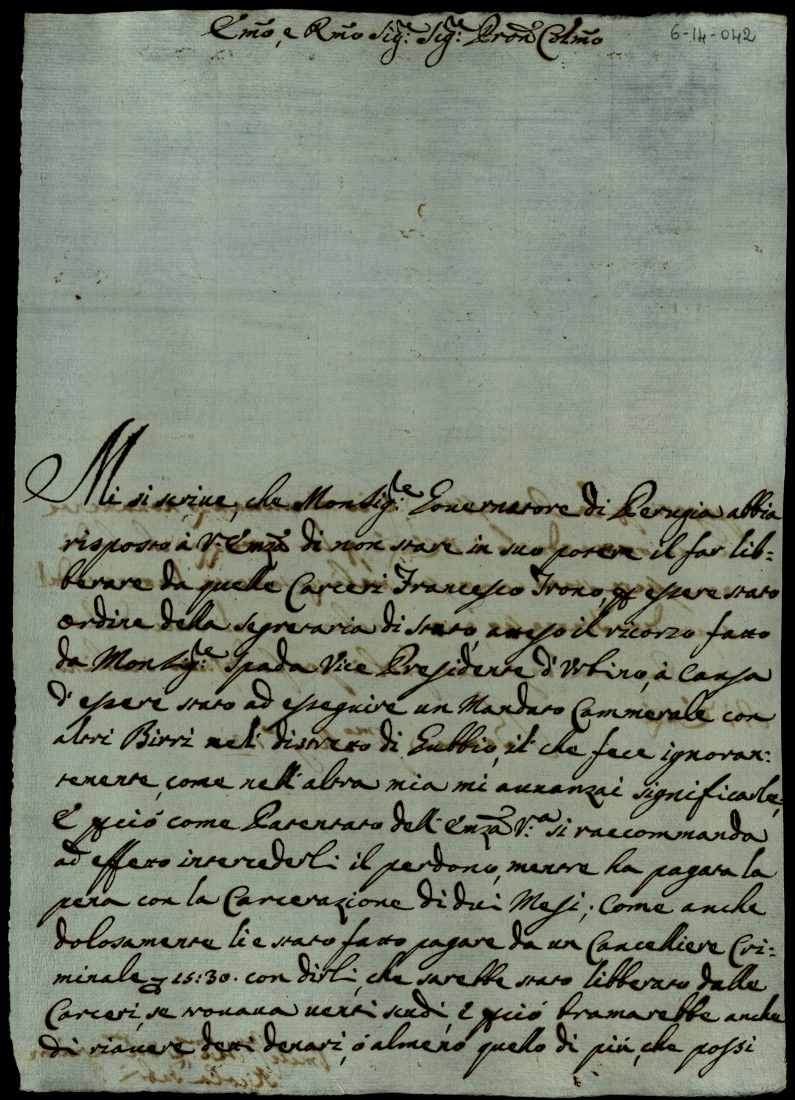 Emo, e Rmo Sig.e Sig.e Pron Colmo
6-14-042
Mi si scriue, che Monsig.e Gouernatore di Perugia abbia
risposto à V. Emza di non stare in suo potere il far lib=
berare da quelle Carceri Francesco Trono, p essere stato
ordine della segretaria di stato, atteso il ricorzo fatto
da Monsig.e Spada Vice Presidente d'Urbino, à causa
d'essere stato ad esseguire un Mandato Cammerale con
altri Birri nel distretto di Gubbio, il che fece ignoran=
temente, come nell'altra mia mi auuanzai significarle,
E pciò come Patentato dell'Emza V.a si raccommanda
ad effetto intercederli il perdono, mentre ha pagata la
pena con la Carcerazione di dui Mesi; Come anche
dolosamente li è stato fatto pagare da un Cancelliere Cri=
minale 15:30. con dirli, che sarebbe stato libberato dalle
Carceri, se trouaua uenti scudi, E pciò bramarebbe anche
di riauere detti denari, ó almeno quello di più, che possi